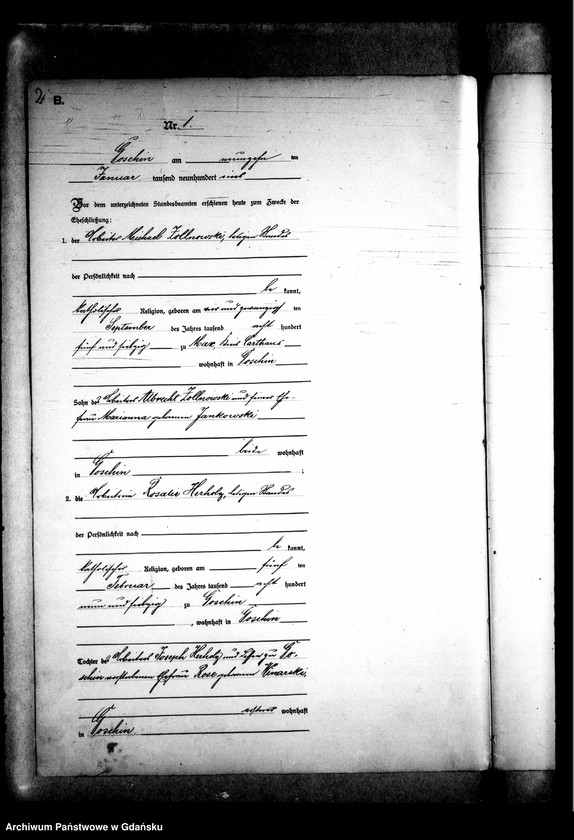 2 B.
Nr. 1.
Goschin am neunzehn ten
Januar tausend neunhundert
Vor dem unterzeichneten Standesbeamten erschienen heute zum Zwecke der
Eheschließung:
1. der Arbeiter Michael Zollnowski, ledigen Standes
der Persönlichkeit nach
be kannt,
katholischer Religion, geboren am vier und zwanzigsten
September des Jahres tausend acht hundert
fünf und siebzig zu Kreis Carthaus
wohnhaft in Goschin
Sohn des Arbeiters Albrecht Zollnowski und seiner Ehe-
frau Marianna geborenen Jankowski
beide wohnhaft
in Goschin ;
2. die Arbeiterin Rosalie Herholz, ledigen Standes
der Persönlichkeit nach
be kannt,
katholischer Religion, geboren am fünf ten
Februar des Jahres tausend acht hundert
neun und siebzig zu Goschin
, wohnhaft in Goschin
Tochter des Arbeiters Joseph Herholz und dessen zu Go-
schin verstorbenen Ehefrau Rose geborenen
ersterer wohnhaft
in Goschin
Archiwum Państwowe w Gdańsku